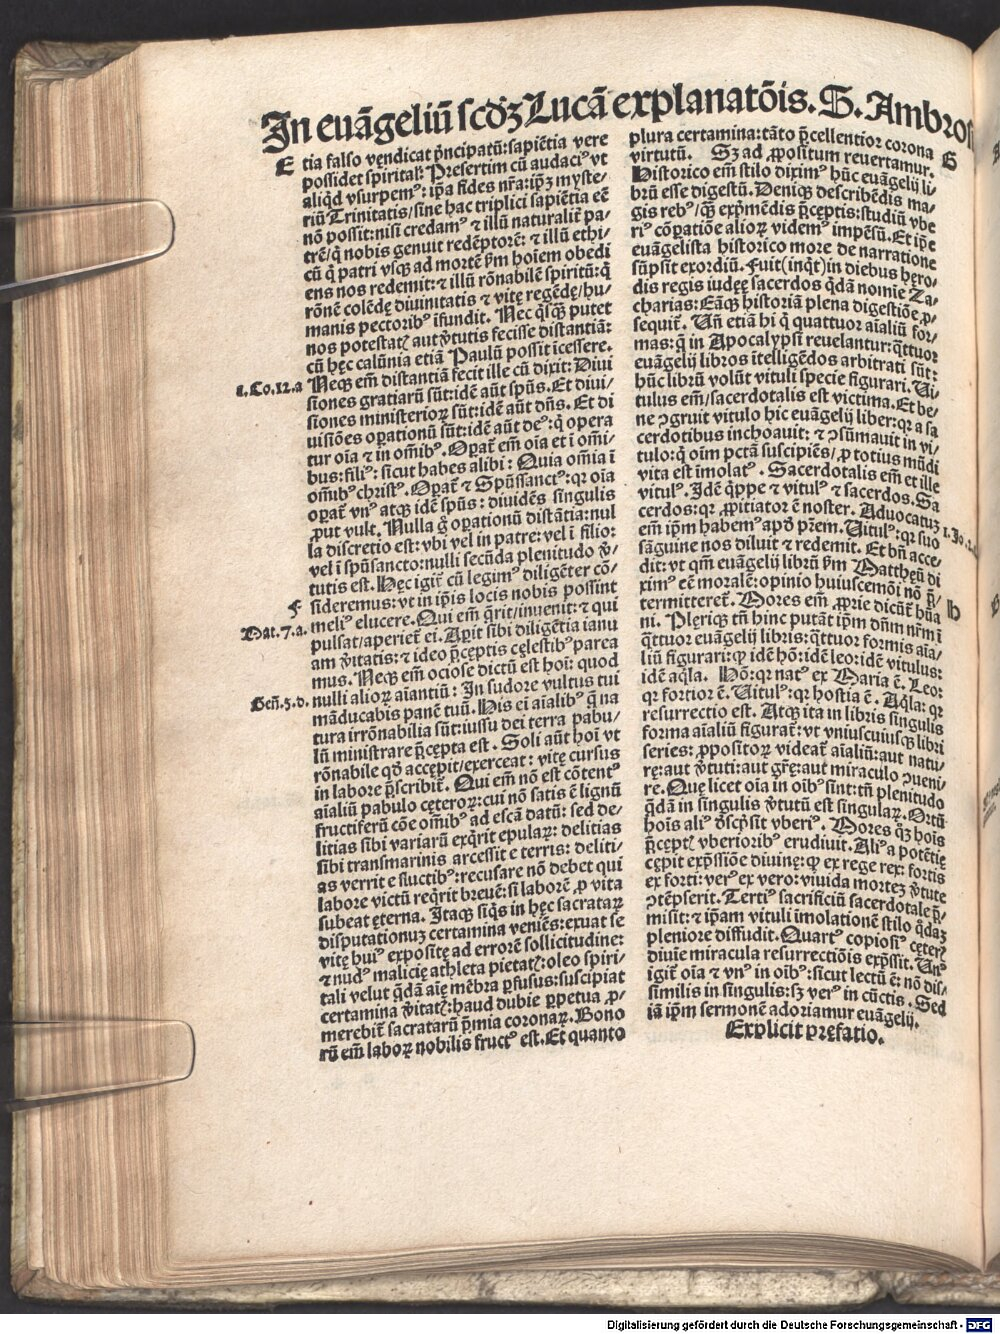 In euãgeliũ scdʒ Lucã explanatõis. S. Ambros
E
tia falso vendicat p̃ncipatũ: sapiẽtia vere
possidet spirital᷒. Presertim cũ audaciꝰ vt
aliq̃d vsurpemꝰ: ip̃a fides nr̃a: ip̃ʒ myste/
riũ Trinitatis/sine hac triplici sapiẽtia eẽ
nõ possit: nisi credamꝰ ⁊ illũ naturalit̃ pa/
trẽ/q̃ nobis genuit redẽptorẽ: ⁊ illũ ethi/
cũ q̃ patri vsqꝫ ad mortẽ ẜm hoiem obedi
ens nos redemit: ⁊ illũ rõnabilẽ spiritũ: q̃
rõnẽ colẽdę diuinitatis ⁊ vitę regẽdę/hu/
manis pectoribꝰ ĩfundit. Nec q̃sq̃ꝫ putet
nos potestat᷒ aut ꝟtutis fecisse distantiã:
cũ hęc calũnia etiã Paulũ possit ĩcessere.
1. Co. 12. a Neqꝫ em̃ distantiã fecit ille cũ dixit: Diui
siones gratiarũ sũt: idẽ aũt spũs. Et diui/
siones ministerioꝝ sũt: idẽ aũt dñs. Et di
uisiões oꝑationũ sũt: idẽ aũt deꝰ: q̃ opera
tur oĩa ⁊ in om̃ibꝰ. Oꝑat̃ em̃ oĩa et ĩ om̃i/
bus: filiꝰ: sicut habes alibi: Quia om̃ia ĩ
om̃ibꝰ christꝰ. Oꝑat̃ ⁊ Spũssanctꝰ: qꝛ oĩa
oꝑat̃ vnꝰ atqꝫ idẽ spũs: diuidẽs singulis
ꝓut vult. Nulla g̃ oꝑationũ distãtia: nul
la discretio est: vbi vel in patre: vel ĩ filio:
vel ĩ spũsancto: nulli secũda plenitudo ꝟ/
tutis est. Hęc igit̃ cũ legimꝰ diligẽter cõ/
F
sideremus: vt in ip̃is locis nobis possint
Mat. 7. a. meliꝰ elucere. Qui em̃ q̃rit/inuenit: ⁊ qui
pulsat/aperiet̃ ei. Aꝑit sibi diligẽtia ianu
am ꝟitatis: ⁊ ideo p̃ceptis cęlestibꝰ parea
mus. Neqꝫ em̃ ociose dictũ est hoĩ: quod
Geñ. 3. d. nulli alioꝝ aĩantiũ: In sudore vultus tui
mãducabis panẽ tuũ. His ei aĩalibꝰ q̃ na
tura irrõnabilia sũt: iussu dei terra pabu/
lũ ministrare p̃cepta est. Soli aũt hoĩ vt
rõnabile qd̃ accępit/exerceat: vitę cursus
in labore p̃scribit̃. Qui em̃ nõ est cõtentꝰ
aĩaliũ pabulo cęteroꝝ: cui nõ satis ẽ lignũ
fructiferũ cõe om̃ibꝰ ad escã datũ: sed de/
litias sibi variarũ exq̃rit epulaꝝ: delitias
sibi transmarinis arcessit e terris: deliti/
as verrit e fluctibꝰ: recusare nõ debet qui
labore victũ req̃rit breuẽ: si laborẽ ꝓ vita
subeat ęterna. Itaqꝫ siq̃s in hęc sacrataꝝ
disputationuʒ certamina veniẽs: exuat se
vitę huiꝰ expositę ad errorẽ sollicitudine:
⁊ nudꝰ malicię athleta pietat᷒: oleo spiri/
tali velut q̃dã aĩę mẽbra ꝑfusus: suscipiat
certamina ꝟitat᷒: haud dubie ꝑpetua ꝓ/
merebit̃ sacratarũ p̃mia coronaꝝ. Bono
rũ em̃ laboꝝ nobilis fructꝰ est. Et quanto
plura certamina: tãto p̃cellentior corona
virtutũ. Sʒ ad ꝓpositum reuertamur. G
Historico em̃ stilo diximꝰ hũc euãgelij li/
brũ esse digestũ. Deniqꝫ describẽdis ma/
gis rebꝰ/q̃ꝫ exp̃mẽdis p̃ceptis: studiũ vbe
riꝰ cõꝑatiõe alioꝝ videmꝰ impẽsũ. Et ip̃e
euãgelista historico more de narratione
sũpsit exordiũ. Fuit(inq̃t)in diebus hęro/
dis regis iudęę sacerdos q̃dã noĩne Za/
charias: Eãqꝫ historiã plena digestiõe ꝓ/
sequit̃. Uñ etiã hi q̃ quattuor aĩaliũ for/
mas: q̃ in Apocalypsi reuelantur: q̃ttuor
euãgelij libros ĩtelligẽdos arbitrati sũt:
hũc librũ volũt vituli specie figurari. Ui/
tulus em̃/sacerdotalis est victima. Et be/
ne ꝯgruit vitulo hic euãgelij liber: qꝛ a sa
cerdotibus inchoauit: ⁊ ꝯsũmauit in vi/
tulo: q̃ oĩm pctã suscipiẽs/ꝓ totius mũdi
vita est imolatꝰ. Sacerdotalis em̃ et ille
vitulꝰ. Idẽ q̃ppe ⁊ vitulꝰ ⁊ sacerdos. Sa
cerdos: qꝛ ꝓpitiator ẽ noster. Aduocatuʒ
em̃ ip̃m habemꝰ apď p̃rem. Uitulꝰ: qꝛ suo 1. Jo. 2.
sãguine nos diluit ⁊ redemit. Et bñ acce/
dit: vt qm̃ euãgelij librũ ẜm Matthęũ di
ximꝰ eẽ moralẽ: opinio huiuscemõi nõ p̃/
termitteret̃. Mores em̃ ꝓprie dicũt̃ hũa H
ni. Pleriqꝫ tñ hinc putãt ip̃m dñm nr̃m ĩ
q̃ttuor euãgelij libris: q̃ttuor formis aĩa/
liũ figurari: ꝙ idẽ hõ: idẽ leo: idẽ vitulus:
idẽ aq̃la. Hõ: qꝛ natꝰ ex Maria ẽ. Leo:
qꝛ fortior ẽ. Uitulꝰ: qꝛ hostia ẽ. Aq̃la: qꝛ
resurrectio est. Atqꝫ ita in libris singulis
forma aĩaliũ figurat̃: vt vniuscuiusqꝫ libri
series: ꝓpositoꝝ videat̃ aĩaliũ: aut natu/
rę: aut ꝟtuti: aut gr̃ę: aut miraculo ꝯueni/
re. Quę licet oĩa in oĩbꝰ sint: tñ plenitudo
q̃dã in singulis ꝟtutũ est singulaꝝ. Ortũ
hoĩs aliꝰ ď̃scp̃sit vberiꝰ. Mores q̃ʒ hoĩs
p̃cept᷒ vberioribꝰ erudiuit. Aliꝰ a potẽtię
cępit exp̃ssiõe diuinę: ꝙ ex rege rex: fortis
ex forti: verꝰ ex vero: viuida morteʒ ꝟtute
ꝯtẽpserit. Tertiꝰ sacrificiũ sacerdotale p̃/
misit: ⁊ ip̃am vituli imolationẽ stilo q̃daʒ
pleniore diffudit. Quartꝰ copiosiꝰ cęter᷒
diuie miracula resurrectiõis exp̃ssit. Unꝰ
igit̃ oĩa ⁊ vnꝰ in oĩbꝰ: sicut lectũ ẽ: nõ dis/
similis in singulis: sʒ verꝰ in cũctis. Sed
iã ip̃m sermonẽ adoriamur euãgelij.
Explicit pręfatio.
Digitalisierung gefördert durch die Deutsche Forschungsgemeinschaft - DFG